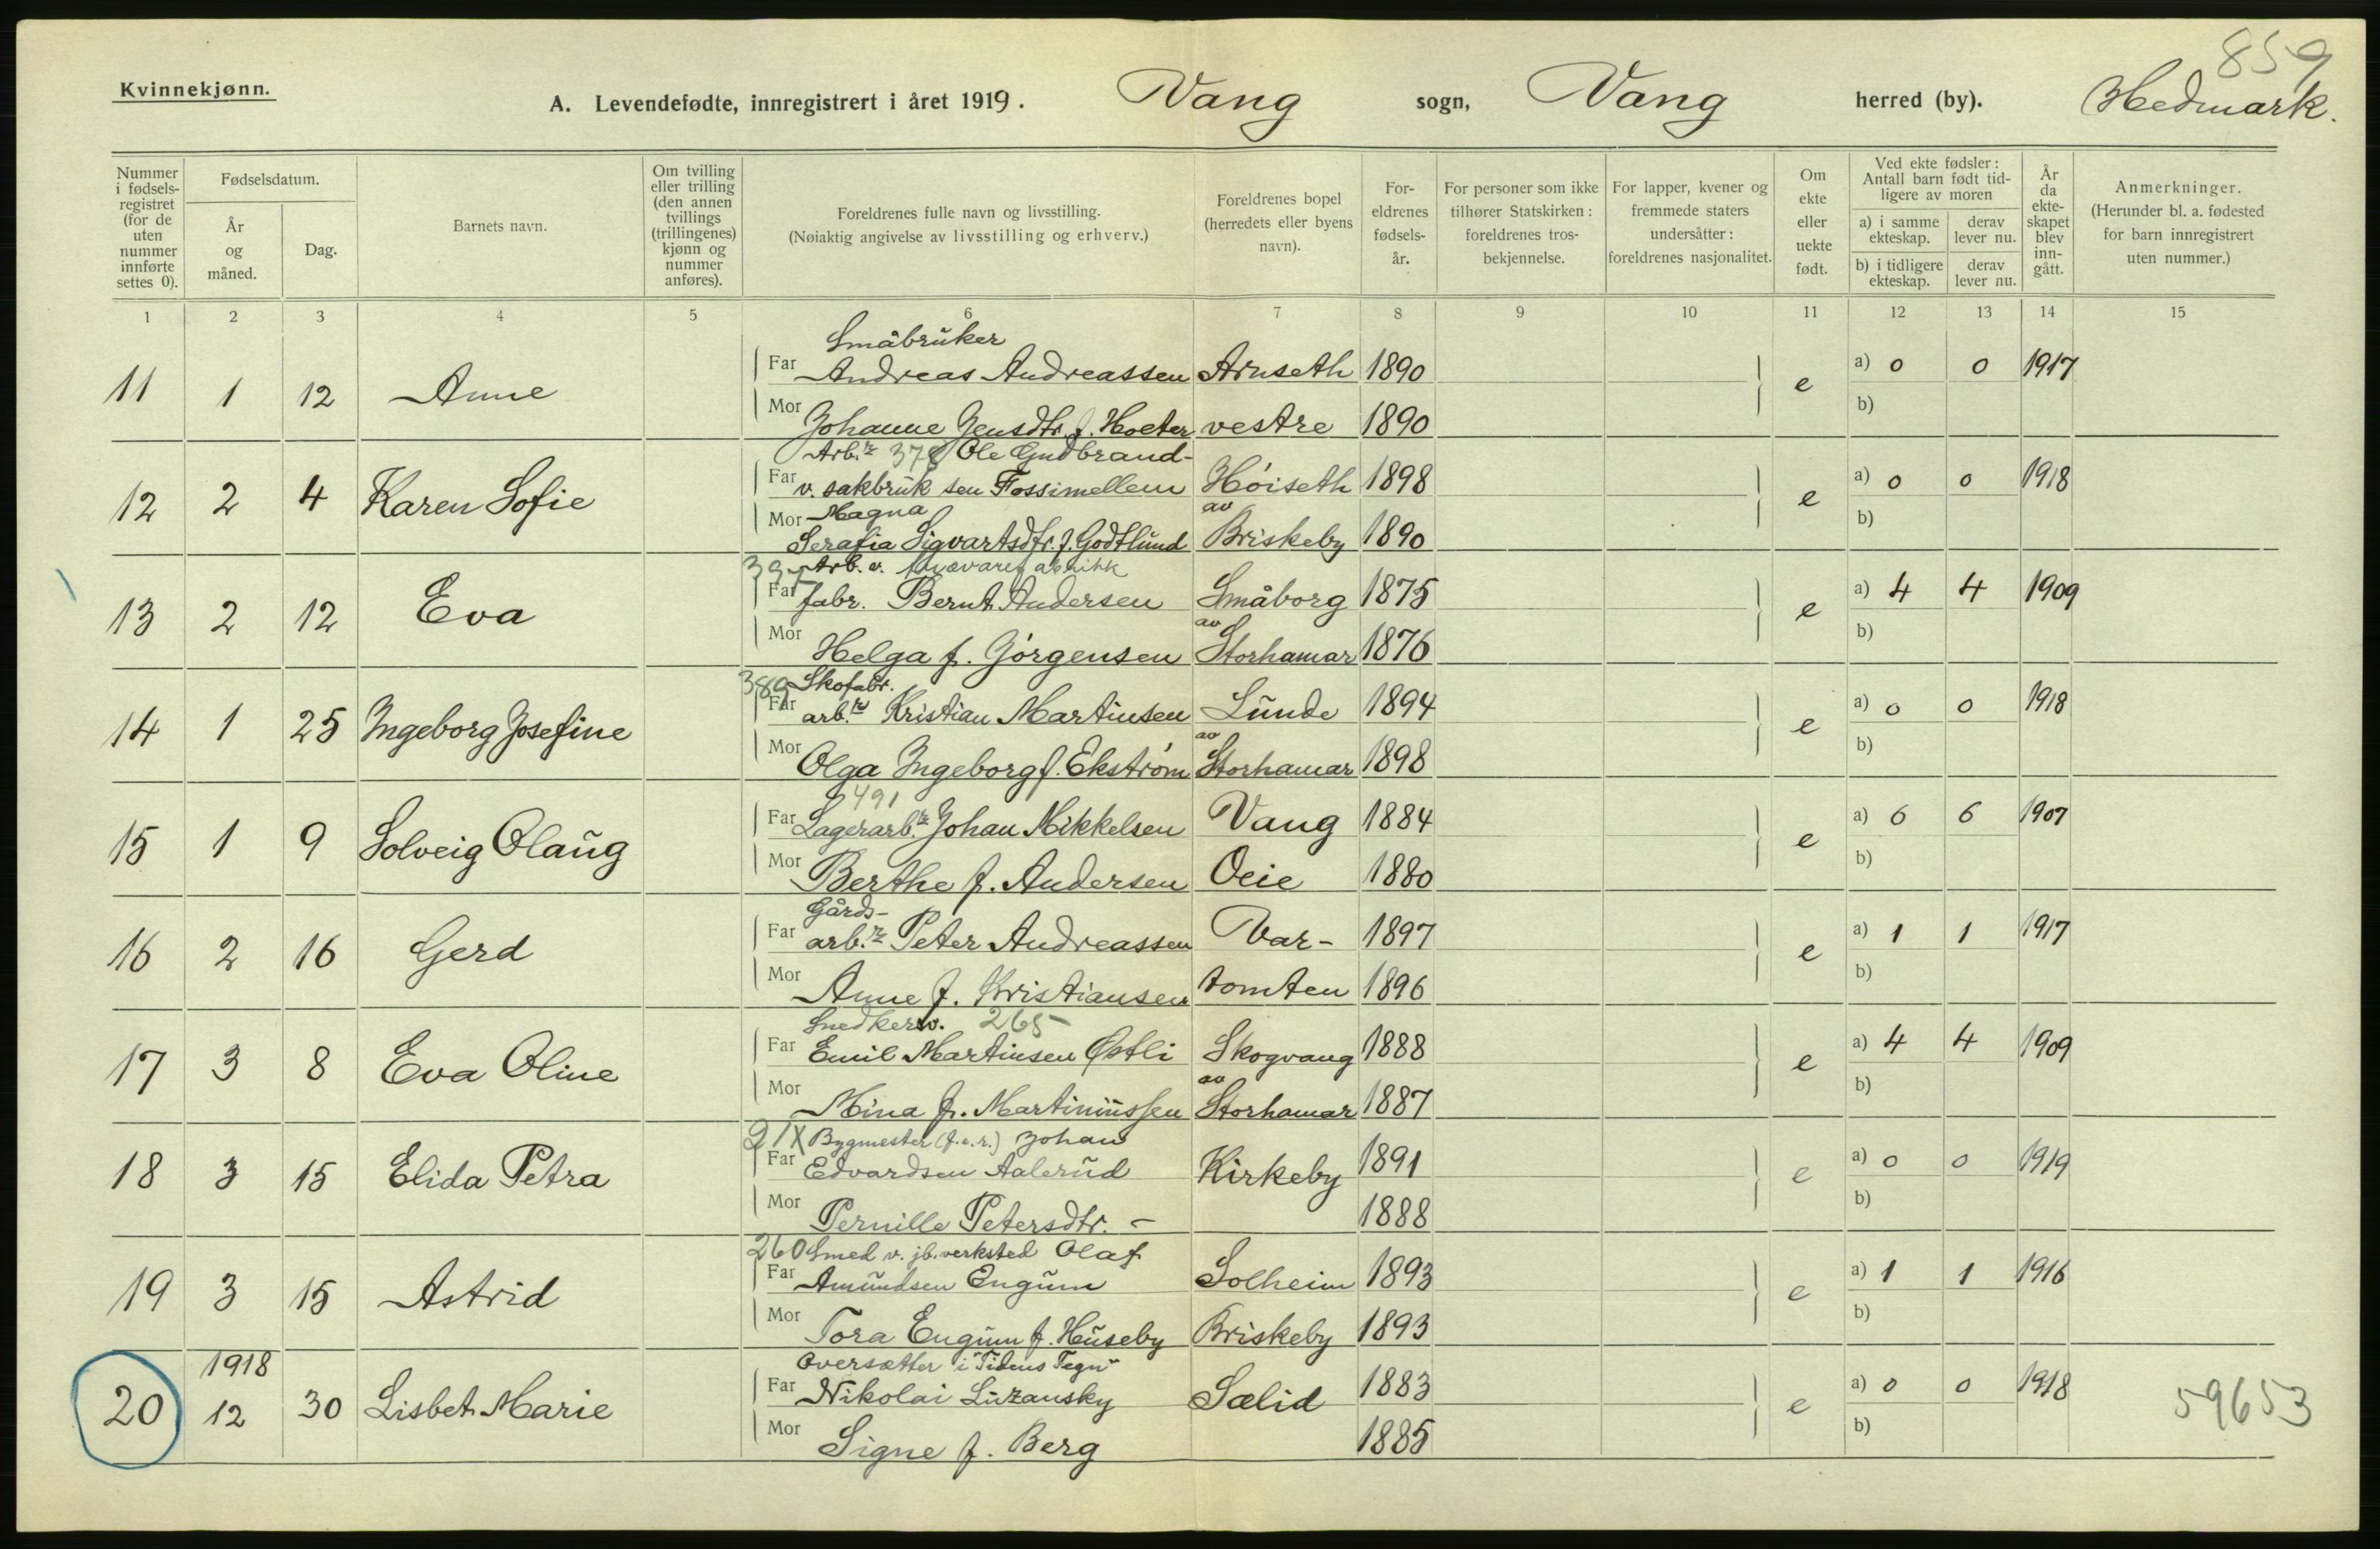 859
Kvinnekjønn.
A. Levendefødte, innregistrert i året 1919. Vang sogn, Vang herred (by). Hedmark.
Nummer i fødsels-registret (for de uten nummer innførte settes 0).
Fødselsdatum.
År og måned.
Dag.
Barnets navn.
Om tvilling eller trilling (den annen tvillings (trillingenes) kjønn og nummer anføres).
Foreldrenes fulle navn og livsstilling.
(Nøiaktig angivelse av livsstilling og erhverv.)
Foreldrenes bopel (herredets eller byens navn).
For-eldrenes fødsels-år.
For personer som ikke tilhører Statskirken: foreldrenes tros-bekjennelse.
For lapper, kvener og fremmede staters undersåtter: foreldrenes nasjonalitet.
Om ekte eller uekte født.
Ved ekte fødsler: Antall barn født tid-ligere av moren
a) i samme ekteskap.
derav lever nu.
b) i tidligere ekteskap.
derav lever nu.
År da ekte-skapet blev inn-gått.
Anmerkninger.
(Herunder bl. a. fødested for barn innregistrert uten nummer.)
1 2 3 4 5 6 7 8 9 10 11 12 13 14 15
Småbruker
11 1 12 Anne Far Andreas Andreassen Arnseth 1890 e a) 0 0 1917
Mor Johanne Jensdtr. f. Hoeter vestre 1890 b)
Arb.r 378 Ole Gudbrand-
12 2 4 Karen Sofie Far v. sakbruk sen Fossimellem Høiseth 1898 e a) 0 0 1918
Mor Magna av
Serafia Sigvartsdtr. f. Godtlund Briskeby 1890 b)
Arb. v.
13 2 12 Eva Far fabr. Bernt Andersen Småborg 1875 e a) 4 4 1909
av
Mor Helga f. Jörgensen Storhamar 1876 b)
389 Skofabr.
14 1 25 Ingeborg Josefine Far arb.r Kristian Martinsen Lunde 1894 e a) 0 0 1918
av
Mor Olga Ingeborg f. Ekstrøm Storhamar 1898 b)
491
15 1 9 Solveig Olaug Far Lagerarb.r Johan Mikkelsen Vang 1884 e a) 6 6 1907
Mor Berthe f. Andersen Oeie 1880 b)
Gårds-
16 2 16 Gerd Far arb.r Peter Andreassen Var- 1897 e a) 1 1 1917
Mor Anne f. Kristiansen tomten 1896 b)
Snedkersv. 265
17 3 8 Eva Oline Far Emil Martinsen Østli Skogvang 1888 e a) 4 4 1909
av
Mor Mina f. Martiniussen Storhamar 1887 b)
21X Bygmester (f.e.r.) Johan
18 3 15 Elida Petra Far Edvardsen Aalerud Kirkeby 1891 e a) 0 0 1919
Mor Pernille Petersdtr. - 1888 b)
260 Smed v. jb.verksted Olaf
19 3 15 Astrid Far Amundsen Engum Solheim 1893 e a) 1 1 1916
Mor Tora Engum f. Huseby Briskeby 1893 b)
1918 Oversætter i "Tidens Tegn"
20 12 30 Lisbet Marie Far Nikolai Luzansky Sælid 1883 e a) 0 0 1918 59653
Mor Signe f. Berg 1885 b)